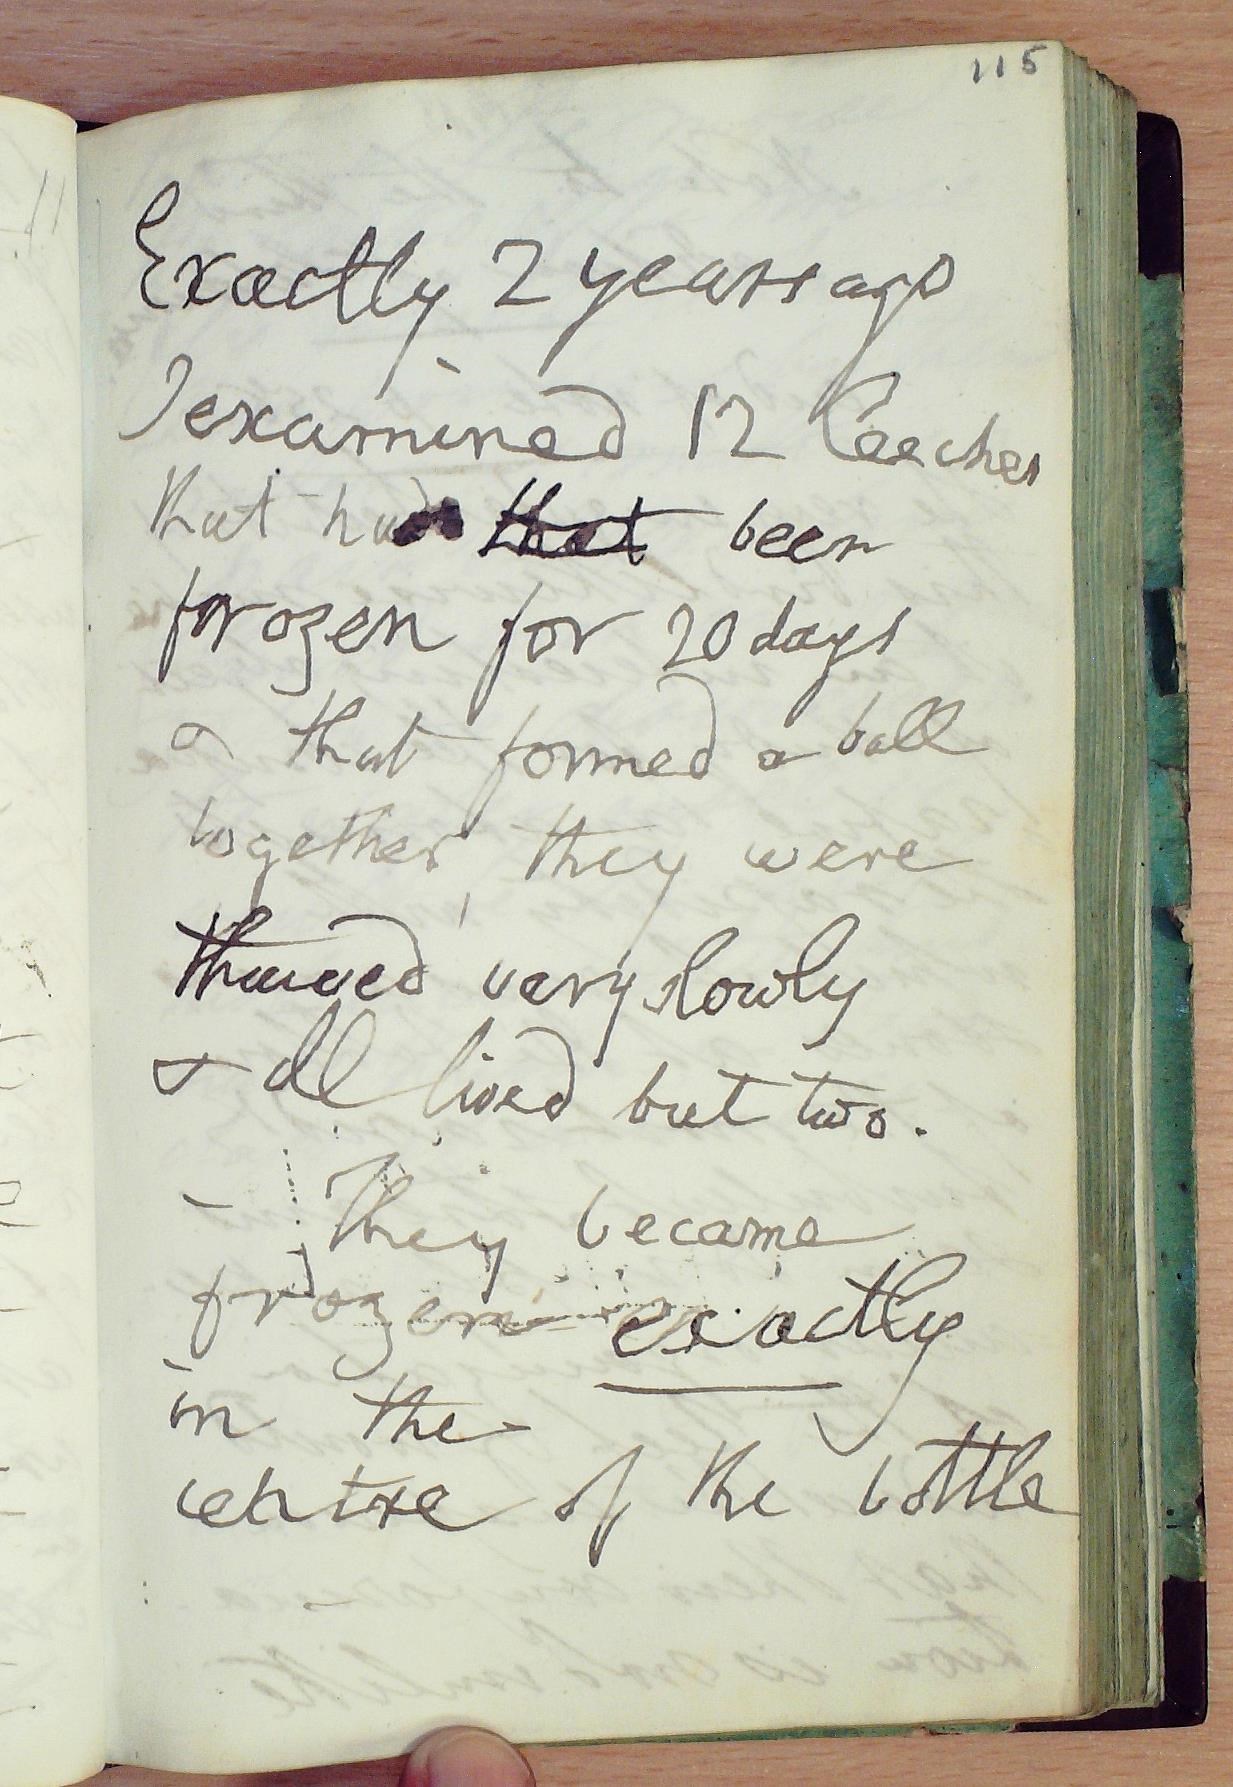 115
Exactly 2 years ago
I examined 12 leeches
that had that been
frozen for 20 days
& that formed a ball
together, they were
thawed very slowly
& all lived but two.
- They became
frozen exactly
in the
centre of the bottle